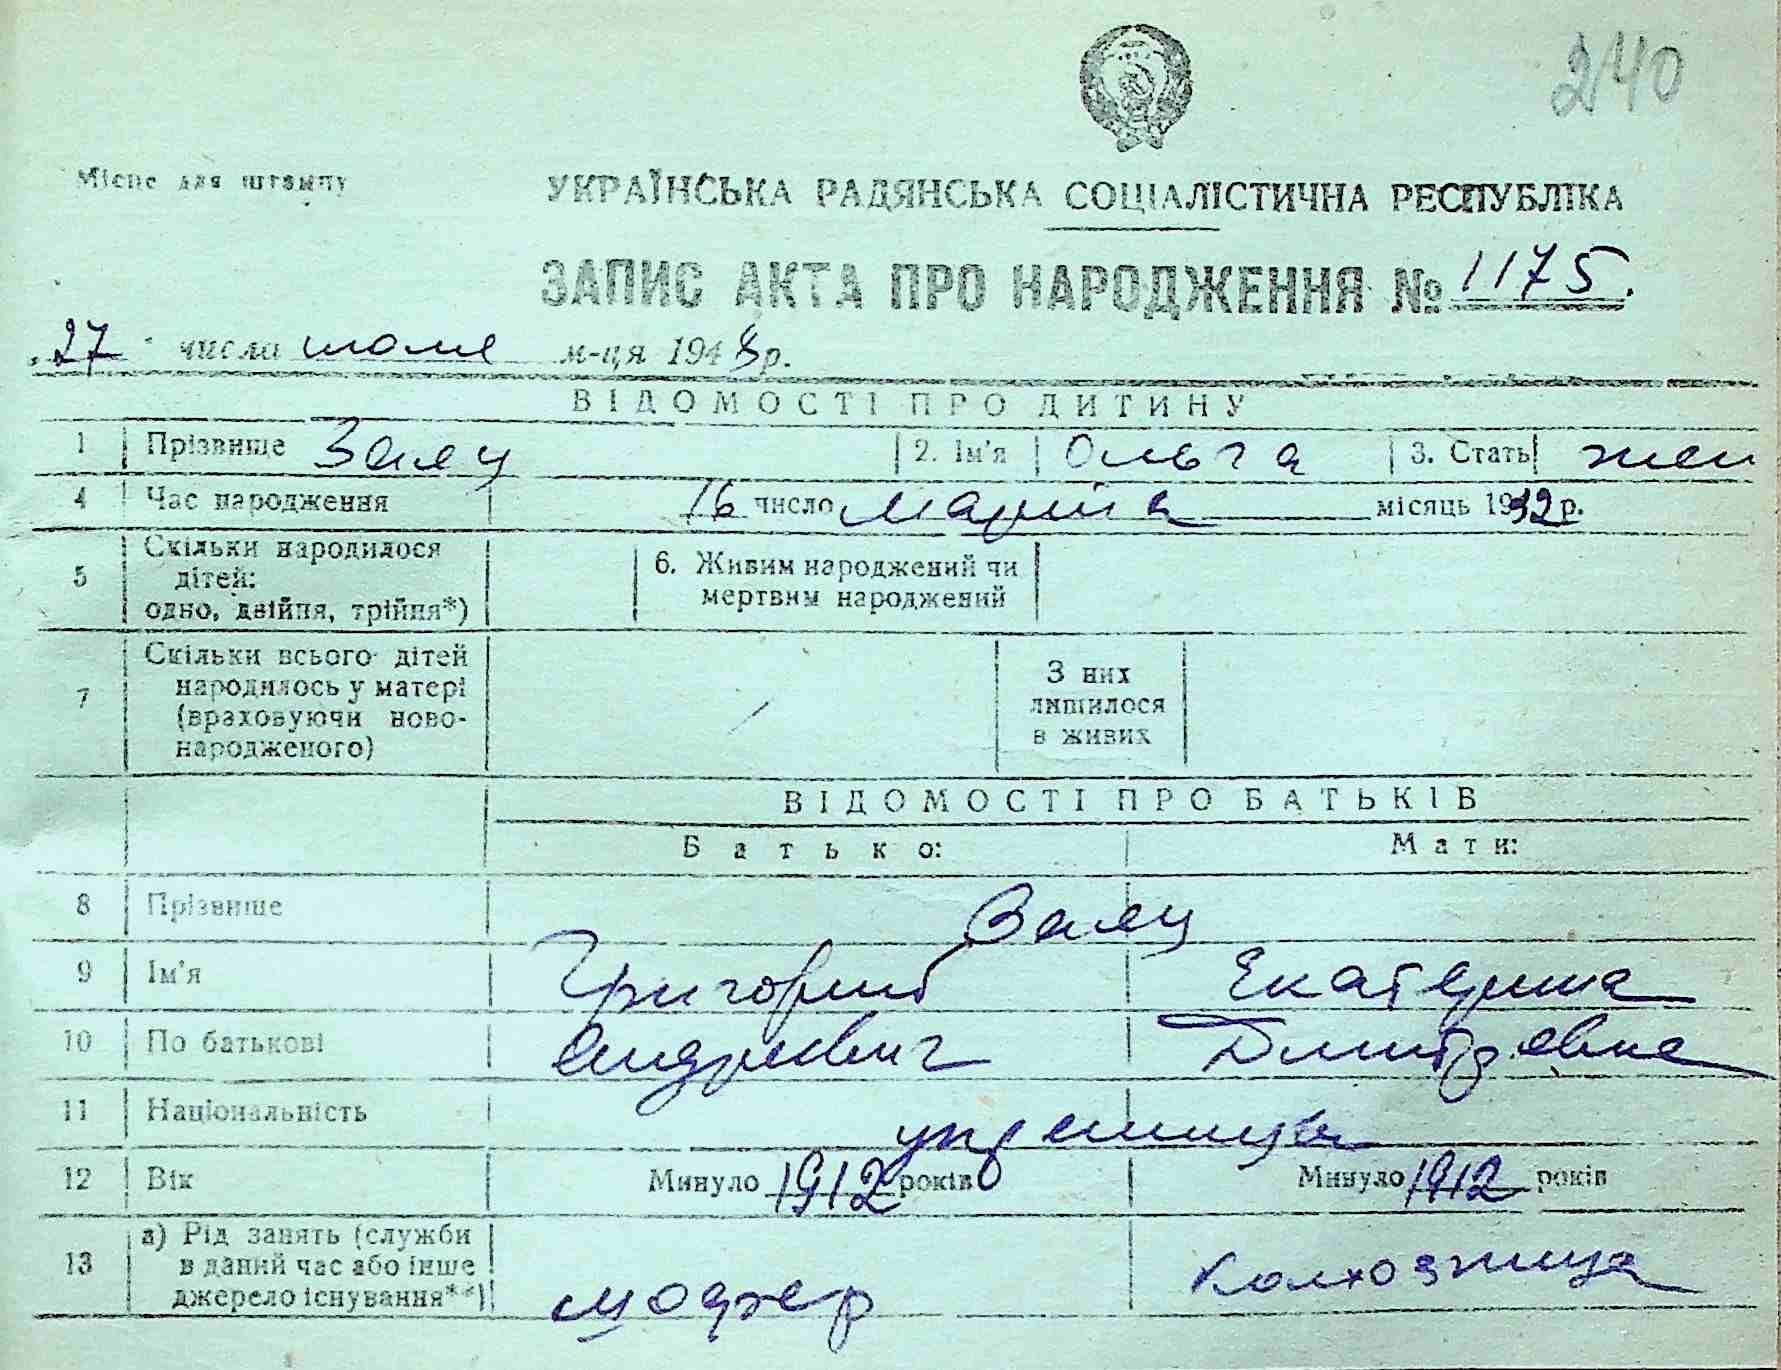 240
Місце для штампу
УКРАЇНСЬКА РАДЯНСЬКА СОЦІАЛІСТИЧНА РЕСПУБЛІКА
ЗАПИС АКТА ПРО НАРОДЖЕННЯ № 1175.
„27" числа июля м-ця 1948 р.
ВІДОМОСТІ ПРО ДИТИНУ
1 Прізвище Заяц 2. Ім'я Ольга 3. Стать жен
4 Час народження 16 число марта місяць 1932 р.
5 Скільки народилося
дітей:
одно, двійня, трійня*)
6. Живим народжений чи
мертвим народжений
7 Скільки всього дітей
народилось у матері
(враховуючи ново-
народженого)
З них
лишилося
в живих
ВІДОМОСТІ ПРО БАТЬКІВ
Батько: Мати:
8 Прізвище Заяц
9 Ім'я Григорий Екатерина
10 По батькові Андреевич Дмитревна
11 Національність украинцы
12 Вік Минуло 1912 років Минуло 1912 років
13 а) Рід занять (служби
в даний час або інше
джерело існування**)
шофер колхозница